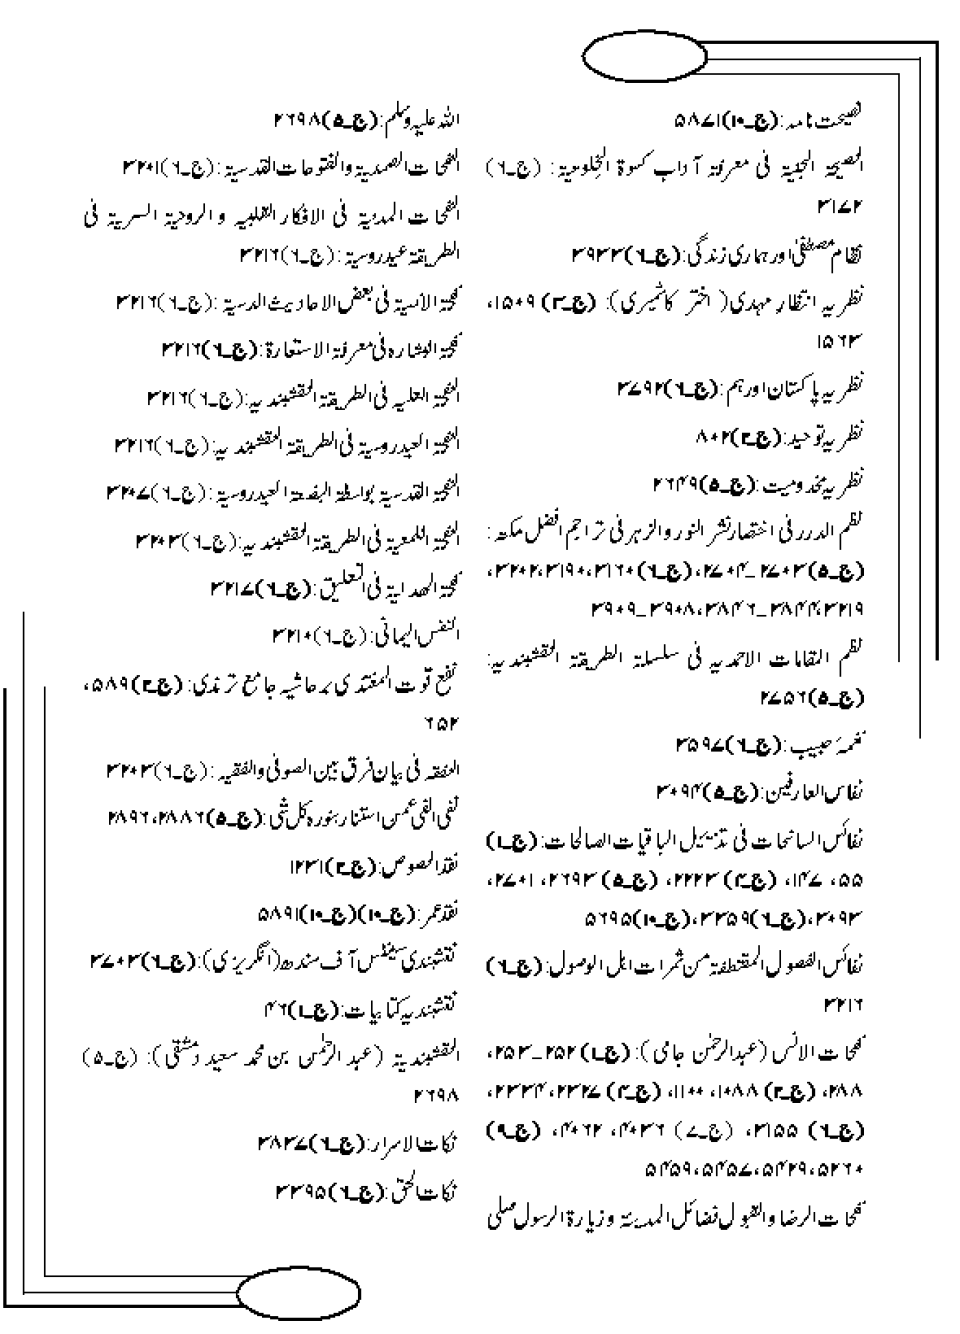 نصیحت نامہ:(ج۔۱۰)۵۸۷۱
النصیحۃ الجنیۃ فی معرفۃ آداب کسوۃ الخلوتیۃ: (ج۔۶)
۳۱۷۲
نظام مصطفیٰ اور ہماری زندگی:(ج۔۶)۳۹۳۳
نظریہ انتظار مہدی( اختر کاشمیری): (ج۔۳)۱۵۰۹،
۱۵۶۳
نظریہ پاکستان اور ہم:(ج۔۶)۳۷۹۲
نظریہ توحید:(ج۔۲)۸۰۲
نظریہ مخدومیت:(ج۔۵)۲۶۴۹
نظم الدرر فی اختصار نشر النور والزہر فی تراجم افضل مکہ:
(ج۔۵)۲۷۰۳۔۲۷۰۴، (ج۔۶)۳۱۶۰، ۳۱۹۰، ۳۲۰۲،
۳۲۱۹، ۳۸۴۴۔۳۸۴۶، ۳۹۰۸۔۳۹۰۹
نظم المقامات الاحمدیہ فی سلسلۃ الطریقۃ النقشبندیہ:
(ج۔۵)۲۷۵۶
نغمۂ حبیب:(ج۔۶)۳۵۹۷
نفاس العارفین:(ج۔۵)۳۰۹۴
نفائس السانحات فی تذییل الباقیات الصالحات:(ج۔۱)
۵۵، ۱۴۷، (ج۔۴)۲۲۲۳، (ج۔۵)۲۶۹۳، ۲۷۰۱،
۳۰۹۳، (ج۔۶)۳۳۵۹، (ج۔۱۰)۵۶۹۵
نفائس الفصول المقتطفۃ من ثمرات اہل الوصول:(ج۔۶)
۳۲۱۶
نفحات الانس (عبدالرحمٰن جامی): (ج۔۱)۲۵۲۔۲۵۳،
۲۸۸، (ج۔۲)۱۰۸۸، ۱۱۰۰، (ج۔۴)۲۳۲۷، ۲۳۳۴،
(ج۔۶)۳۱۵۵، (ج۔۷)۴۰۳۶، ۴۰۶۲، (ج۔۹)
۵۲۶۰، ۵۴۲۹، ۵۴۵۷، ۵۴۵۹
نفحات الرضا والقبول فضائل المدینۃ وزیارۃ الرسول صلی
اللہ علیہ وسلم:(ج۔۵)۲۶۹۸
النفحات الصمدیۃ والفتوحات القدسیۃ:(ج۔۶)۳۲۰۱
النفحات المدنیۃ فی الافکار القلبیہ و الروحیۃ السریۃ فی
الطریقۃ عیدروسیۃ:(ج۔۶)۳۲۱۶
نفحۃ الانسیۃ فی بعض الاحادیث الدسیۃ:(ج۔۶)۳۲۱۶
نفحۃ البشارہ فی معرفۃ الاستعارۃ:(ج۔۶)۳۲۱۶
النفحۃ العلیہ فی الطریقۃ النقشبندیہ:(ج۔۶)۳۲۱۶
النفحۃ العیدروسیۃ فی الطریقۃ النقشبندیہ:(ج۔۶)۳۲۱۶
النفحۃ القدسیۃ بواسطۃ البضعۃ العیدروسیۃ:(ج۔۶)۳۲۰۷
النفحۃ اللمعیۃ فی الطریقۃ النقشبندیہ:(ج۔۶)۳۲۰۳
نفحۃ الھدایۃ فی التعلیق:(ج۔۶)۳۲۱۷
النفس الیمانی:(ج۔۶)۳۲۱۰
نفع قوت المغتذی بر حاشیہ جامع ترمذی: (ج۔۲)۵۸۹،
۶۵۲
النفقہ فی بیان فرق بین الصوفی والفقیہ:(ج۔۶)۳۲۰۳
نفی الفئ عمن استنار بنورہ کل شئ:(ج۔۵)۲۸۸۶، ۲۸۹۶
نقد النصوص:(ج۔۲)۱۲۳۱
نقد عمر:(ج۔۱۰)(ج۔۱۰)۵۸۹۱
نقشبندی سینٹس آف سندھ(انگریزی):(ج۔۶)۳۷۰۳
نقشبندیہ کتابیات:(ج۔۱)۴۶
النقشبندیۃ (عبد الرحمٰن بن محمد سعید دمشقی): (ج۔۵)
۲۶۹۸
نکات الاسرار:(ج۔۶)۳۸۳۷
نکات الحق:(ج۔۶)۳۳۹۵